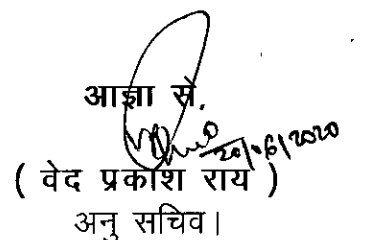 आज्ञा से,
20/06/2020
( वेद प्रकाश राय )
अनु सचिव।